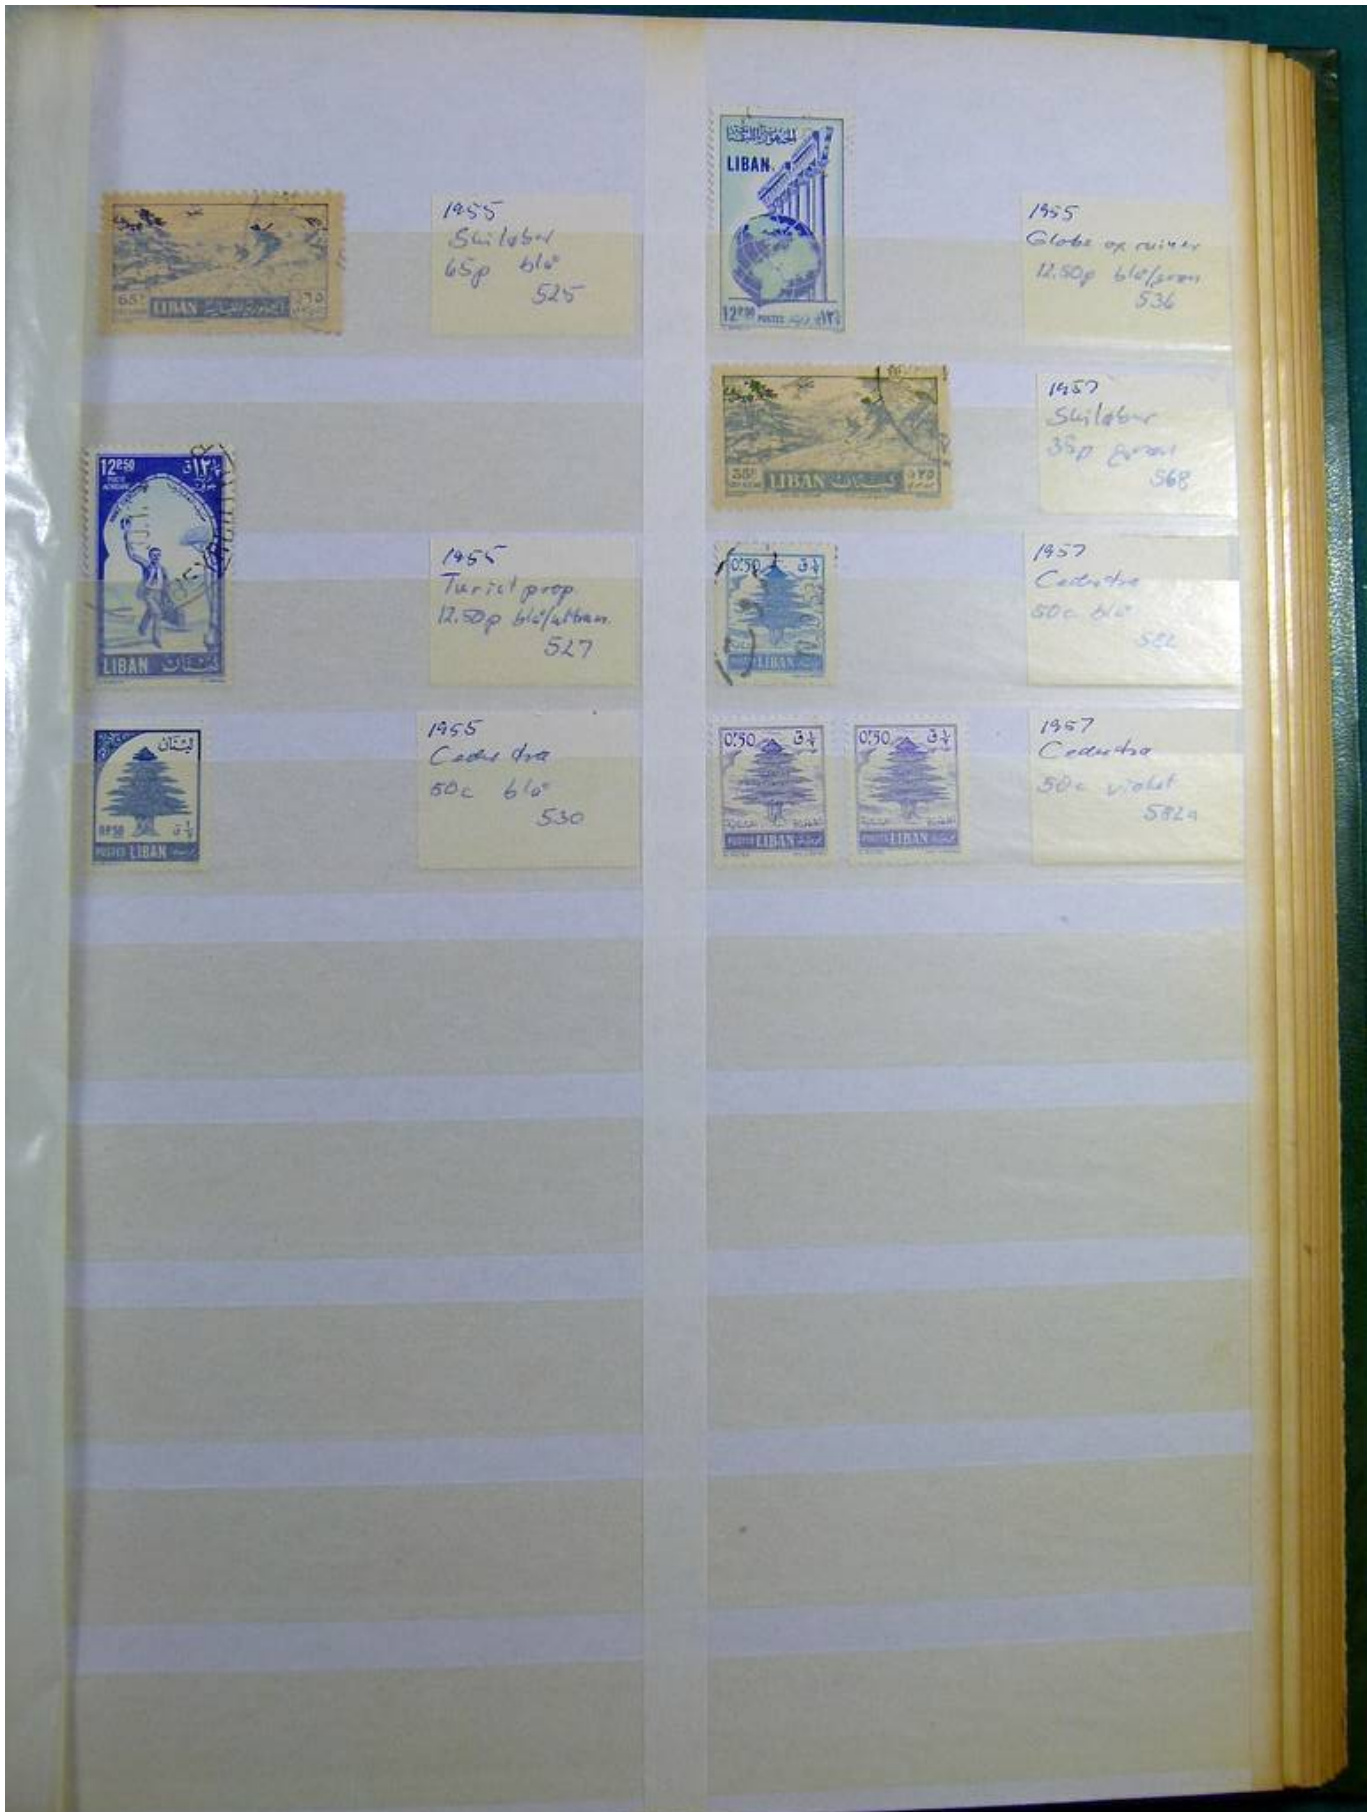 LIBAN
1955
Skiløber
65p blå
525
12P50
LIBAN لبنان
1955
Turist prop.
12.50p blå/ultram.
527
لبنان
0P50
POSTES LIBAN
1955
Cedertræ
50c blå
530
الجمهورية اللبنانية
LIBAN
12P50 POSTES
1955
Globe og ruiner
12.50p blå/grøn
536
35P
LIBAN لبنان
1957
Skiløber
35p grøn
568
0P50
LIBAN
1957
Cedertræ
50c blå
582
0P50 0P50
POSTES LIBAN POSTES LIBAN
1957
Cedertræ
50c violet
582a